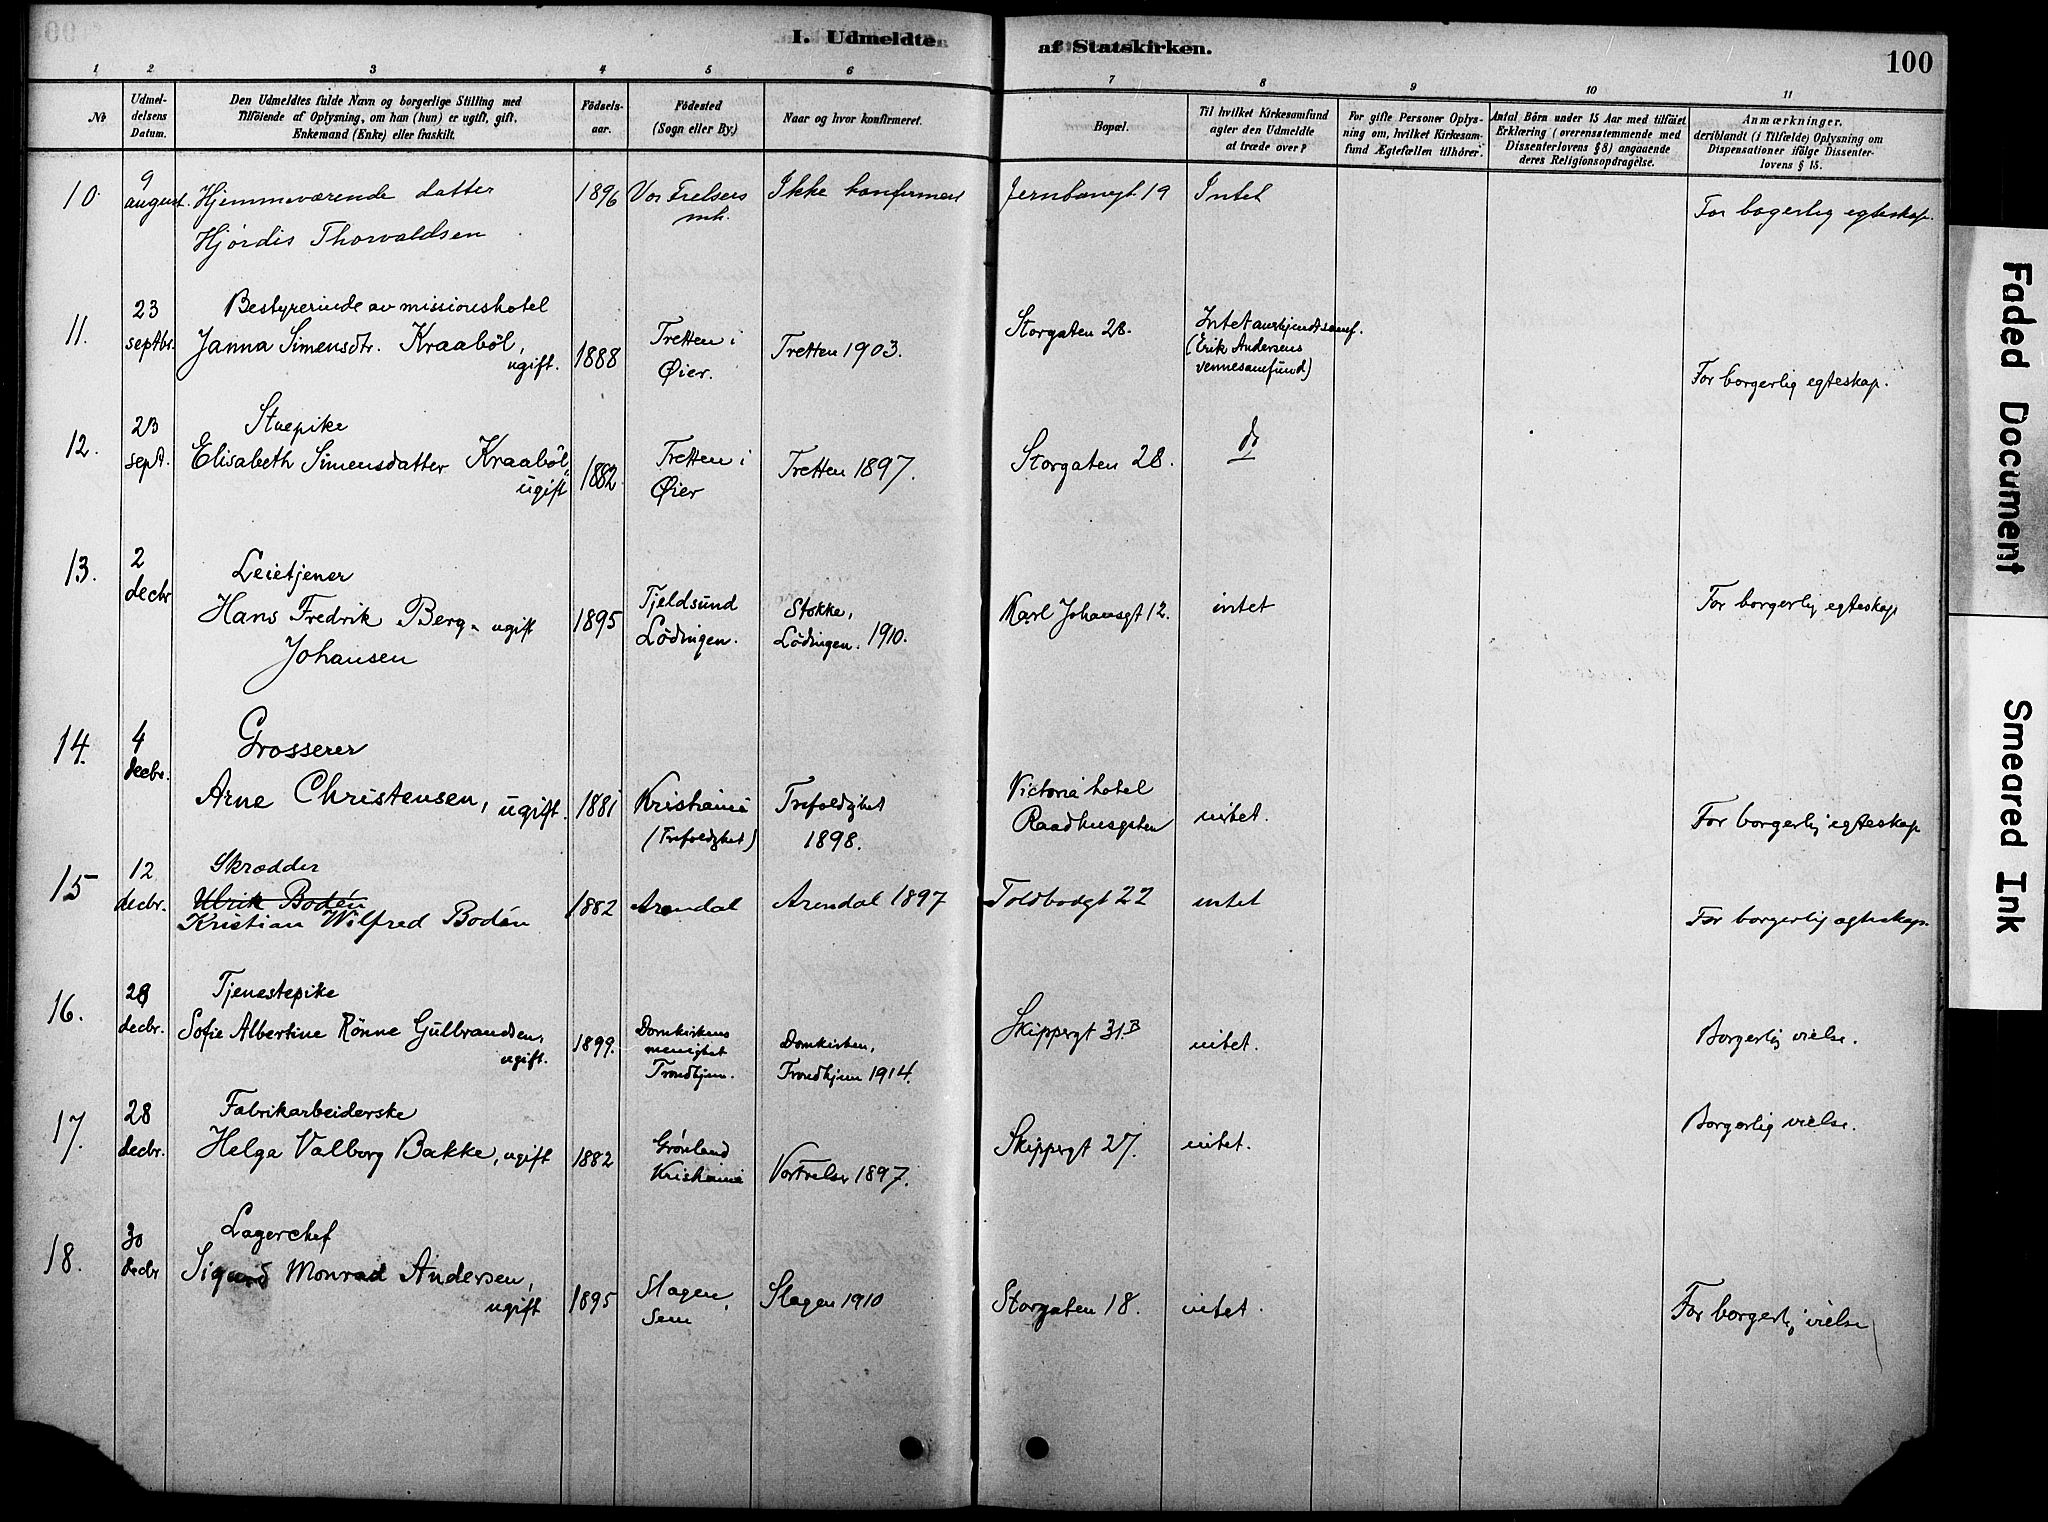 I. Udmeldte af Statskirken.
100
1 2 3 4 5 6 7 8 9 10 11
No
Udmel-
delsens
Datum.
Den Udmeldtes fulde Navn og borgerlige Stilling med
Tilföiende af Oplysning, om han (hun) er ugift, gift,
Enkemand (Enke) eller fraskilt.
Födsels-
aar.
Födested
(Sogn eller By.)
Naar og hvor konfirmeret.
Bopæl.
Til hvilket Kirkesamfund
agter den Udmeldte
at træde over?
For gifte Personer Oplys-
ning om, hvilket Kirkesam-
fund Ægtefællen tilhörer.
Antal Börn under 15 Aar med tilföiet
Erklæring (overensstemmende med
Dissenterlovens § 8) angaaende
deres Religionsopdragelse.
Anmærkninger,
deriblandt (i Tilfælde) Oplysning om
Dispensationer ifölge Dissenter-
lovens § 15.
10.
9
august.
Hjemmeværende datter
Hjördis Thorvaldsen
1896
Vor Frelsers
mh.
Ikke konfirmert
Jernbanegt 19
Intet
For bogerlig egteskap.
11.
23
septbr.
Bestyrerinde av missionshotel
Janna Simensdtr. Kraaböl,
ugift.
1888
Tretten i
Øier.
Tretten 1903.
Storgaten 28.
Intet anerkjendt samf.
(Erik Andersens
vennesamfund)
For borgerlig egteskap.
12.
23
sept.
Stuepike
Elisabeth Simensdatter Kraaböl,
ugift
1882
Tretten i
Øier
Tretten 1897.
Storgaten 28.
do
13.
2
decbr
Leietjener
Hans Fredrik Berg - ugift
Johansen
1895
Tjeldsund
Lödingen.
Stokke,
Lödingen. 1910.
Karl Johansgt 12.
intet
For borgerlig egteskap
14.
4
decbr.
Grosserer
Arne Christensen, ugift.
1881
Kristiania
(Trefoldighet)
Trefoldighet
1898.
Victoria hotel
Raadhusgaten
intet.
For borgerlig egteskap
15
12
decbr.
Skrædder
Ulrik Bodén
Kristian Wilfred Bodén
1882
Arendal
Arendal 1897
Toldbodgt 22
intet
For borgerlig egteskap.
16.
28
decbr.
Tjenestepike
Sofie Albertine Rönne Gulbrandsen,
ugift.
1899.
Domkirkens
menighet
Trondhjem.
Domkirken,
Trondhjem 1914.
Skippergt 31B
intet.
Borgerlig vielse.
17.
28
decbr.
Fabrikarbeiderske
Helga Valborg Bakke, ugift
1882
Grönland
Kristiania
Vor Frelser 1897.
Skippergt 27.
intet.
Borgerlig vielse.
18.
30
decbr
Lagerchef
Sigurd Monrad Andersen,
ugift
1895
Slagen,
Sem
Slagen 1910
Storgaten 18.
intet.
For borgerlig vielse
Faded Document
Smeared Ink